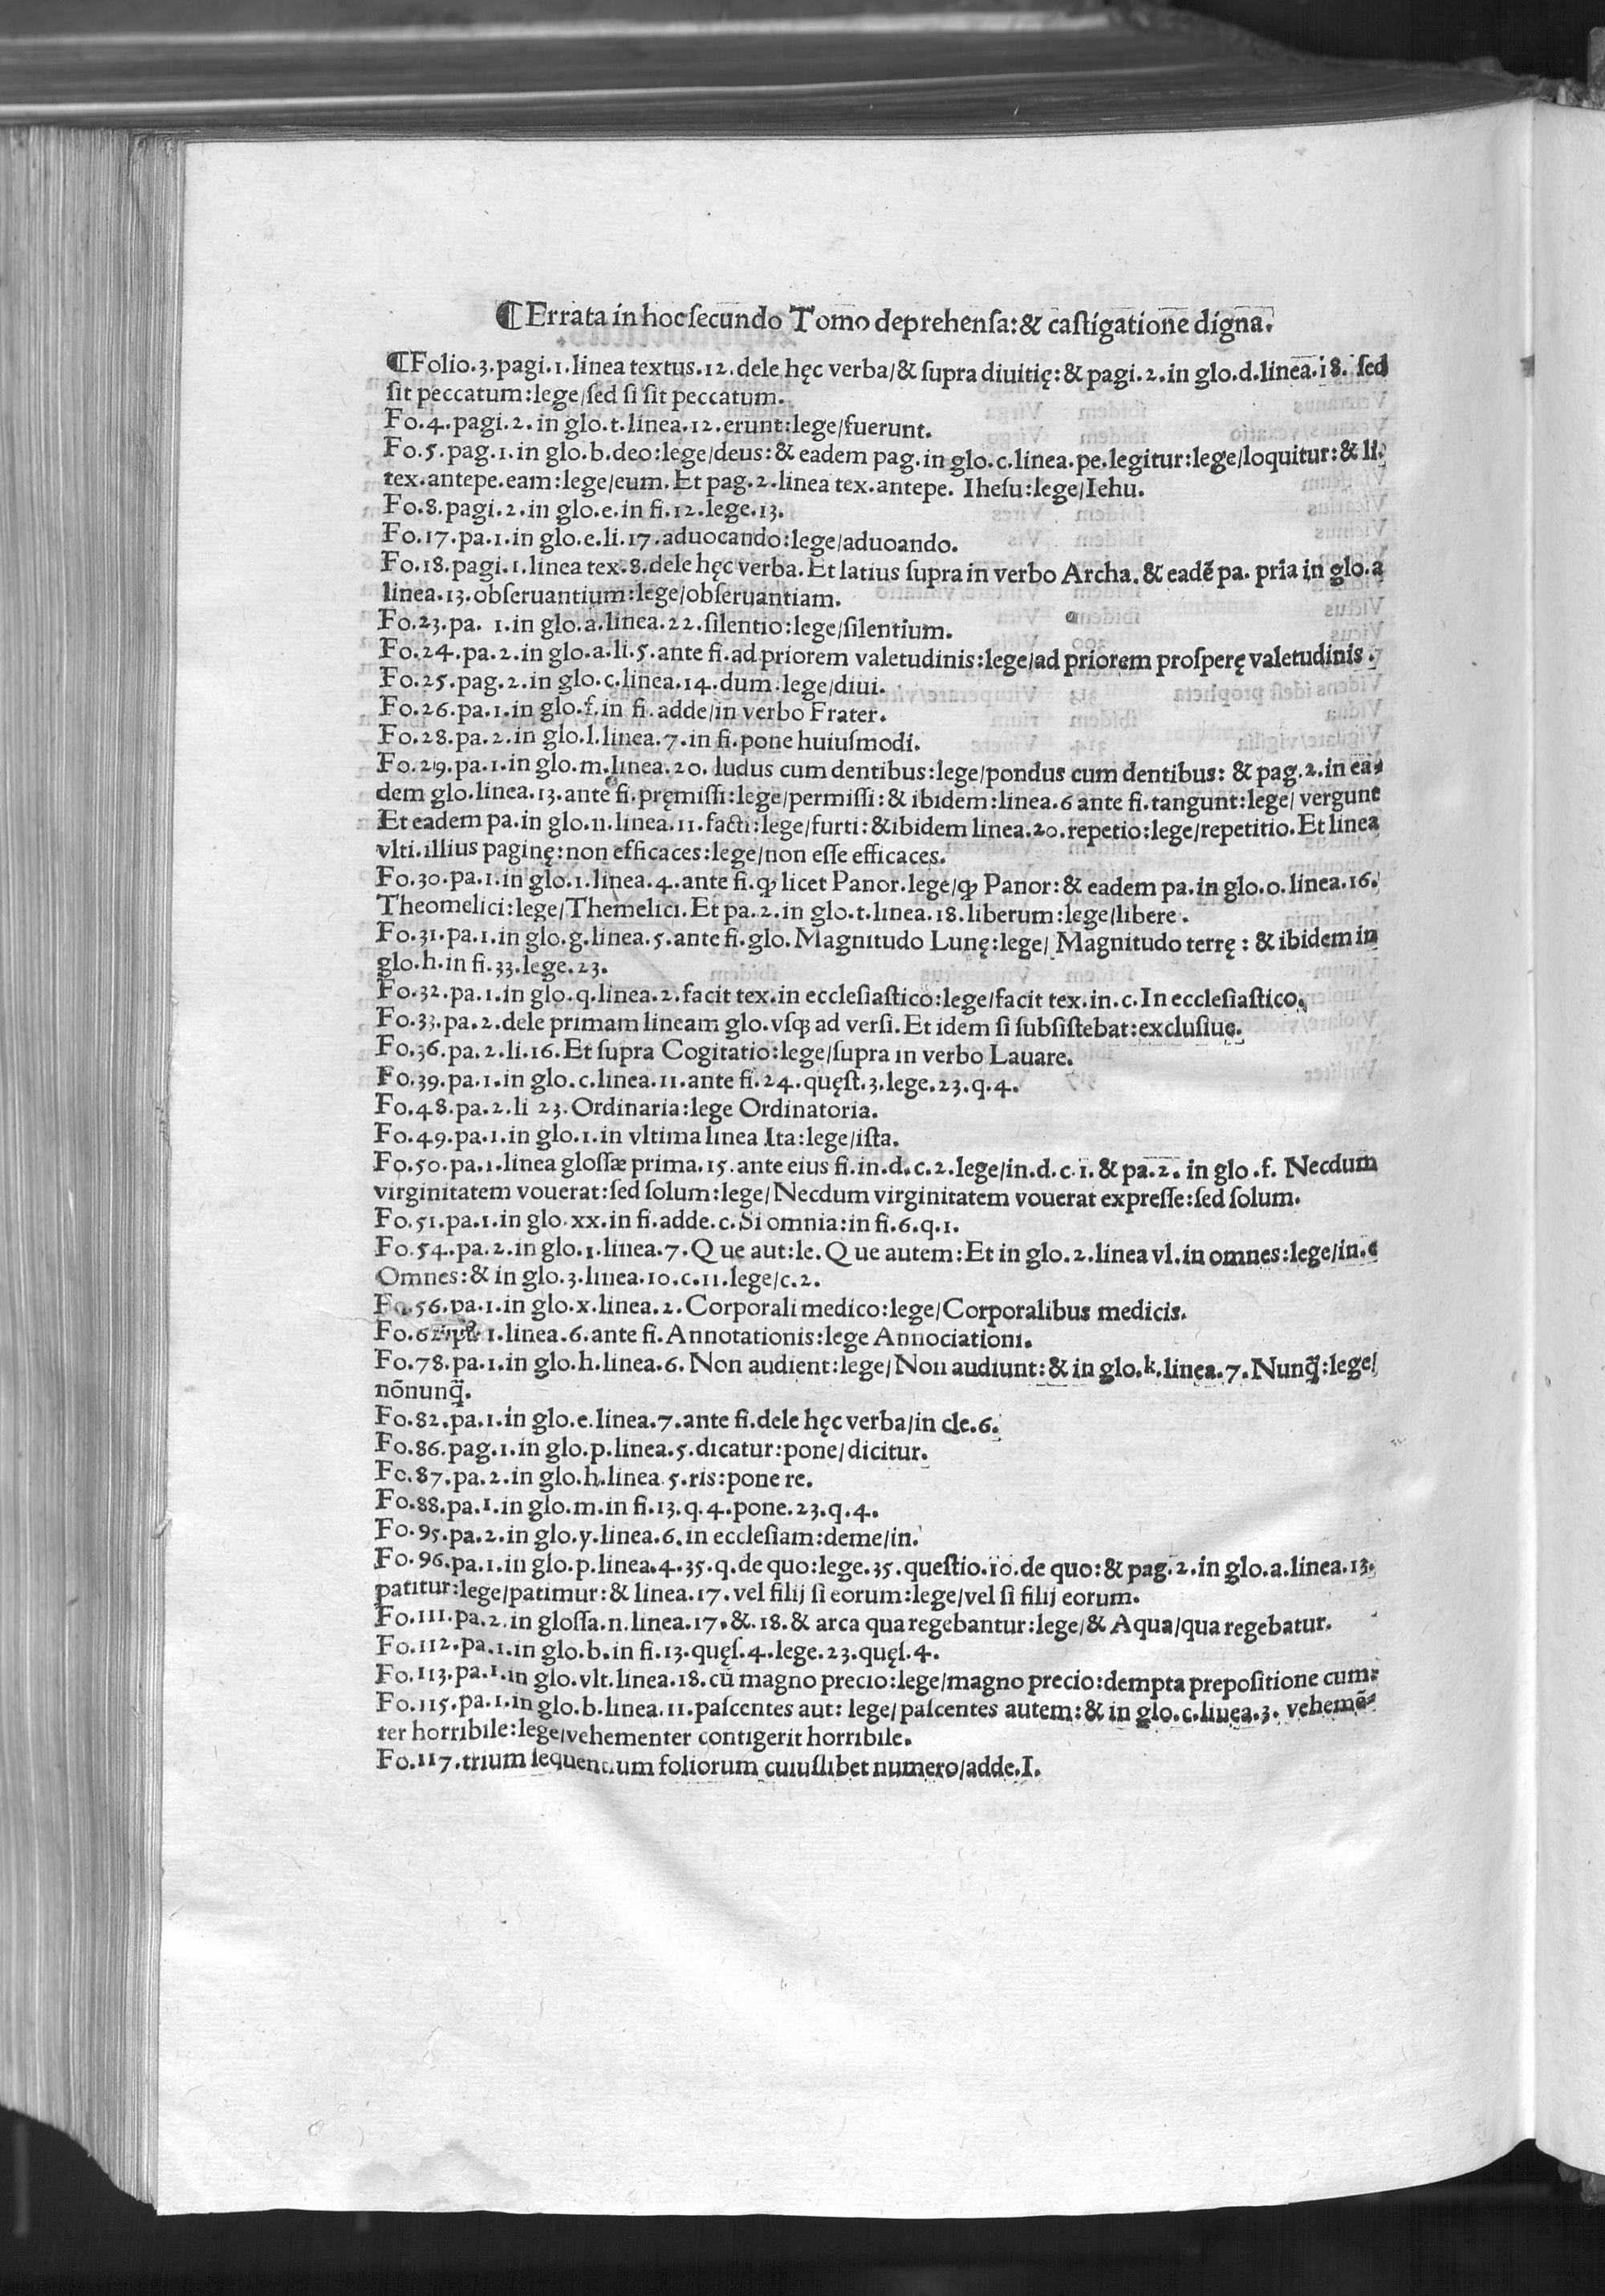 ¶Errata in hoc ſecundo Tomo deprehenſa:& caſtigatione digna.
¶Folio.3.pagi.1.linea textus.12.dele hęc verba/& ſupra diuitię:& pagi.2.in glo.d.linea.i8. ſed
ſit peccatum:lege/ſed ſi ſit peccatum.
Fo.4.pagi.2.in glo.t.linea.12.erunt:lege/fuerunt.
Fo.5.pag.1.in glo.b.deo:lege/deus:& eadem pag.in glo.c.linea.pe.legitur:lege/loquitur:& li.
tex.antepe.eam:lege/eum.Et pag.2.linea tex.antepe. Iheſu:lege/Iehu.
Fo.8.pagi.2.in glo.e.in fi.12.lege.13.
Fo.17.pa.1.in glo.e.li.17.aduocando:lege/aduoando.
Fo.18.pagi.1.linea tex.8.dele hęc verba.Et latius ſupra in verbo Archa.& eadē pa. pria in glo.a
linea.13.obſeruantium:lege/obſeruantiam.
Fo.23.pa. 1.in glo.a.linea.22.ſilentio:lege/ſilentium.
Fo.24.pa.2.in glo.a.li.5.ante fi.ad priorem valetudinis:lege/ad priorem proſperę valetudinis.
Fo.25.pag.2.in glo.c.linea.14.dum.lege/diui.
Fo.26.pa.1.in glo.f.in fi.adde/in verbo Frater.
Fo.28.pa.2.in glo.l.linea.7.in fi.pone huiuſmodi.
Fo.29.pa.1.in glo.m.linea.20. ludus cum dentibus:lege/pondus cum dentibus: & pag.2.in ea-
dem glo.linea.13.ante fi.pręmiſſi:lege/permiſſi:& ibidem:linea.6 ante fi.tangunt:lege/ vergunt
Et eadem pa.in glo.n.linea.11.facti:lege/furti:&ibidem linea.20.repetio:lege/repetitio.Et linea
vlti.illius paginę:non efficaces:lege/non eſſe efficaces.
Fo.30.pa.1.in glo.1.linea.4.ante fi.ꝙ licet Panor.lege/ꝙ Panor:& eadem pa.in glo.o.linea.16.
Theomelici:lege/Themelici.Et pa.2.in glo.t.linea.18.liberum:lege/libere.
Fo.31.pa.1.in glo.g.linea.5.ante fi.glo.Magnitudo Lunę:lege/ Magnitudo terrę: & ibidem in
glo.h.in fi.33.lege.23.
Fo.32.pa.1.in glo.q.linea.2.facit tex.in eccleſiaſtico:lege/facit tex.in.c.In eccleſiaſtico.
Fo.33.pa.2.dele primam lineam glo.vſꝙ ad verſi.Et idem ſi ſubſiſtebat:excluſiue.
Fo.36.pa.2.li.16.Et ſupra Cogitatio:lege/ſupra in verbo Lauare.
Fo.39.pa.1.in glo.c.linea.11.ante fi.24.quęſt.3.lege.23.q.4.
Fo.48.pa.2.li 23.Ordinaria:lege Ordinatoria.
Fo.49.pa.1.in glo.1.in vltima linea Ita:lege/iſta.
Fo.50.pa.1.linea gloſſæ prima.15.ante eius fi.in.d.c.2.lege/in.d.c.i.& pa.2. in glo.f. Necdum
virginitatem vouerat:ſed ſolum:lege/Necdum virginitatem vouerat expreſſe:ſed ſolum.
Fo.51.pa.1.in glo.xx.in fi.adde.c.Si omnia:in fi.6.q.1.
Fo.54.pa.2.in glo.1.linea.7.Que aut:le.Que autem:Et in glo.2.linea vl.in omnes:lege/in.c
Omnes:& in glo.3.linea.10.c.11.lege/c.2.
Fo.56.pa.1.in glo.x.linea.2.Corporali medico:lege/Corporalibus medicis.
Fo.62. 1.linea.6.ante fi.Annotationis:lege Annociationi.
Fo.78.pa.1.in glo.h.linea.6.Non audient:lege/Non audiunt:& in glo.k.linea.7.Nunq̃:lege/
nōnunq̃.
Fo.82.pa.1.in glo.e.linea.7.ante fi.dele hęc verba/in cle.6.
Fo.86.pag.1.in glo.p.linea.5.dicatur:pone/dicitur.
Fo.87.pa.2.in glo.h.linea.5.ris:pone re.
Fo.88.pa.1.in glo.m.in fi.13.q.4.pone.23.q.4.
Fo.95.pa.2.in glo.y.linea.6.in eccleſiam:deme/in.
Fo.96.pa.1.in glo.p.linea.4.35.q.de quo:lege.35.queſtio.10.de quo:& pag.2.in glo.a.linea.13.
patitur:lege/patimur:& linea.17.vel filij ſi eorum:lege/vel ſi filij eorum.
Fo.111.pa.2.in gloſſa.n.linea.17.&.18.& arca qua regebantur:lege/& Aqua/qua regebatur.
Fo.112.pa.1.in glo.b.in fi.13.quęſ.4.lege.23.quęſ.4.
Fo.113.pa.1.in glo.vlt.linea.18.cū magno precio:lege/magno precio:dempta prepoſitione cum:
Fo.115.pa.1.in glo.b.linea.11.paſcentes aut: lege/paſcentes autem:& in glo.c.linea.3. vehemē-
ter horribile:lege/vehementer contigerit horribile.
Fo.117.trium ſequentium foliorum cuiuſlibet numero/adde.I.